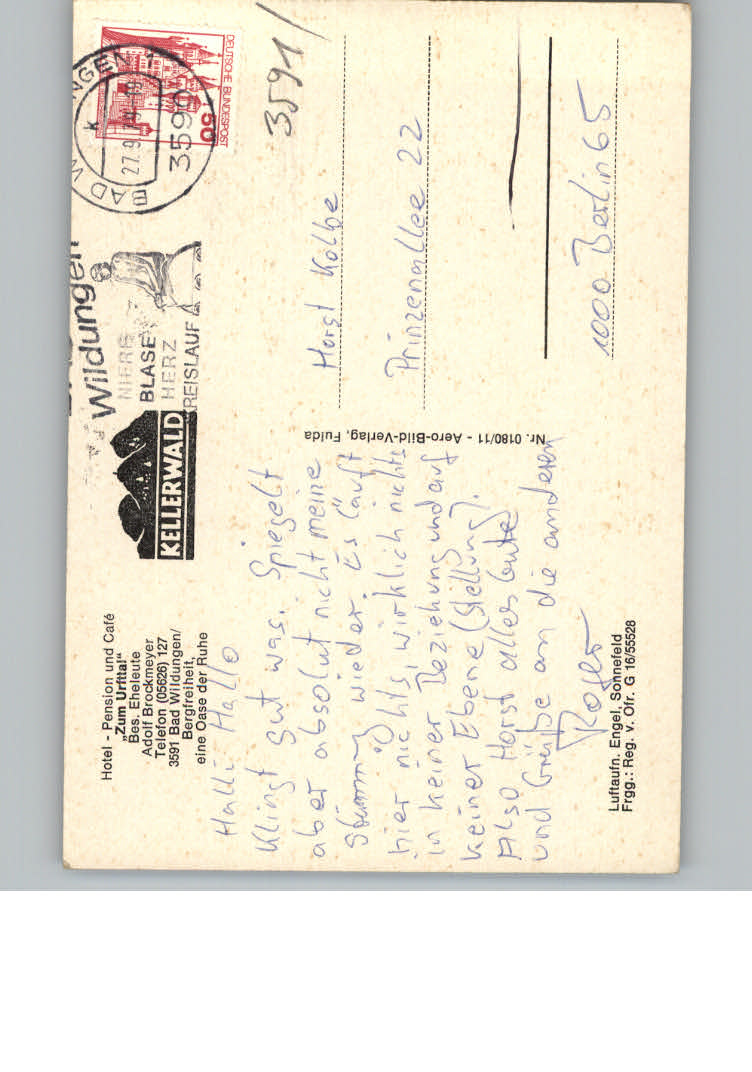 Hotel - Pension und Café
„Zum Urfttal“
Bes. Eheleute
Adolf Brockmeyer
Telefon (05626) 127
3591 Bad Wildungen/
Bergfreiheit,
eine Oase der Ruhe
KELLERWALD
Wildungen
NIERE
BLASE
HERZ
KREISLAUF
BAD W NGEN 1
27.9
3590
DEUTSCHE BUNDESPOST
50
3591/
Halli Hallo
Klingt gut was. Spiegelt
aber absolut nicht meine
Stimmung wieder. Es läuft
hier nichts, wirklich nichts
in keiner Beziehung und auf
keiner Ebene (Stellung).
Also Horst alles Gute
und Grüße an die anderen
Roger
Horst Kolbe
Prinzenallee 22
1000 Berlin 65
Nr. 0180/11 - Aero-Bild-Verlag, Fulda
Luftaufn. Engel, Sonnefeld
Frgg.: Reg. v. Ofr. G 16/55528